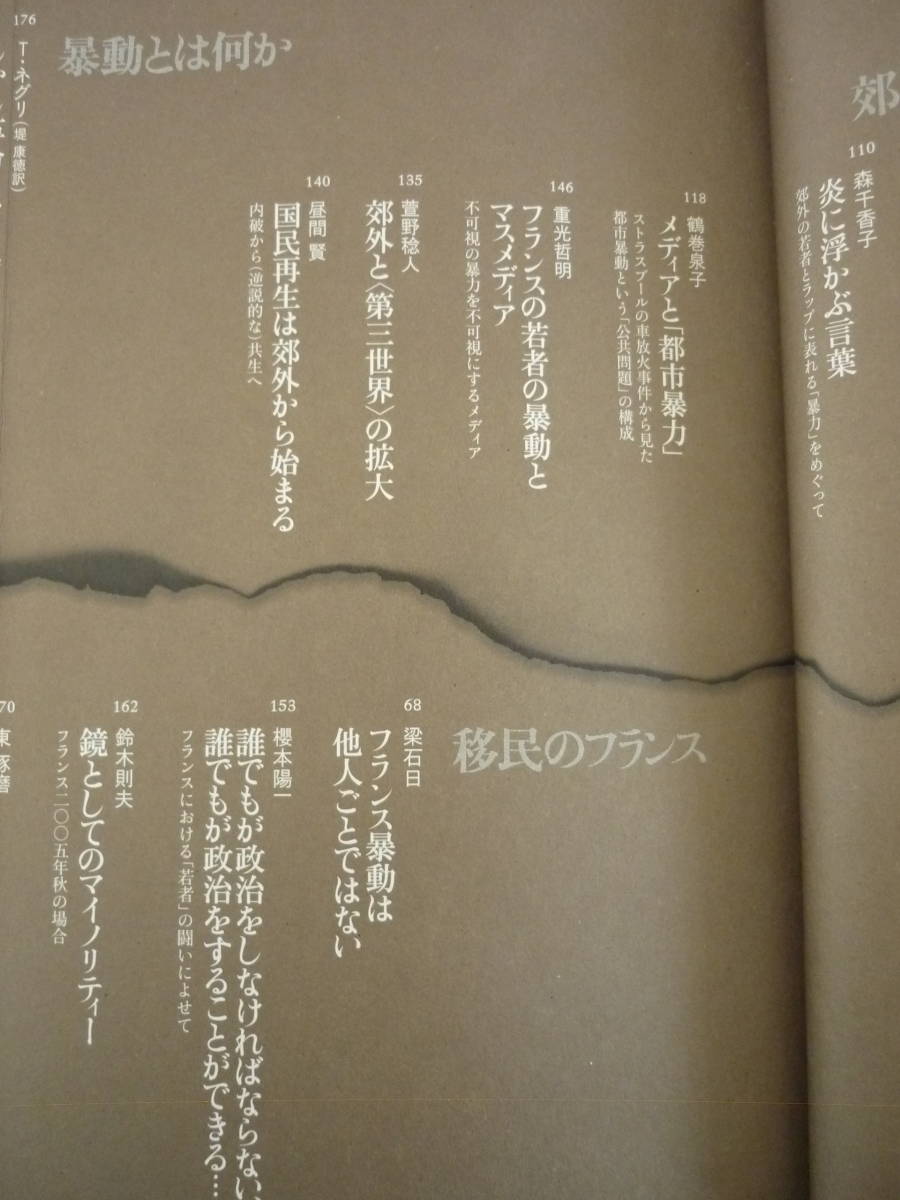 郊
110
森千香子
炎に浮かぶ言葉
郊外の若者とラップに表れる「暴力」をめぐって
118
鶴巻泉子
メディアと「都市暴力」
ストラスブールの車放火事件から見た
都市暴動という「公共問題」の構成
146
重光哲明
フランスの若者の暴動と
マスメディア
不可視の暴力を不可視にするメディア
135
萱野稔人
郊外と〈第三世界〉の拡大
140
昼間 賢
国民再生は郊外から始まる
内破から(逆説的な)共生へ
暴動とは何か
176
T・ネグリ(堤 康徳訳)
移民のフランス
68
梁石日
フランス暴動は
他人ごとではない
153
櫻本陽一
誰でもが政治をしなければならない、
誰でもが政治をすることができる…
フランスにおける「若者」の闘いによせて
162
鈴木則夫
鏡としてのマイノリティー
フランス二〇〇五年秋の場合
70
東琢磨